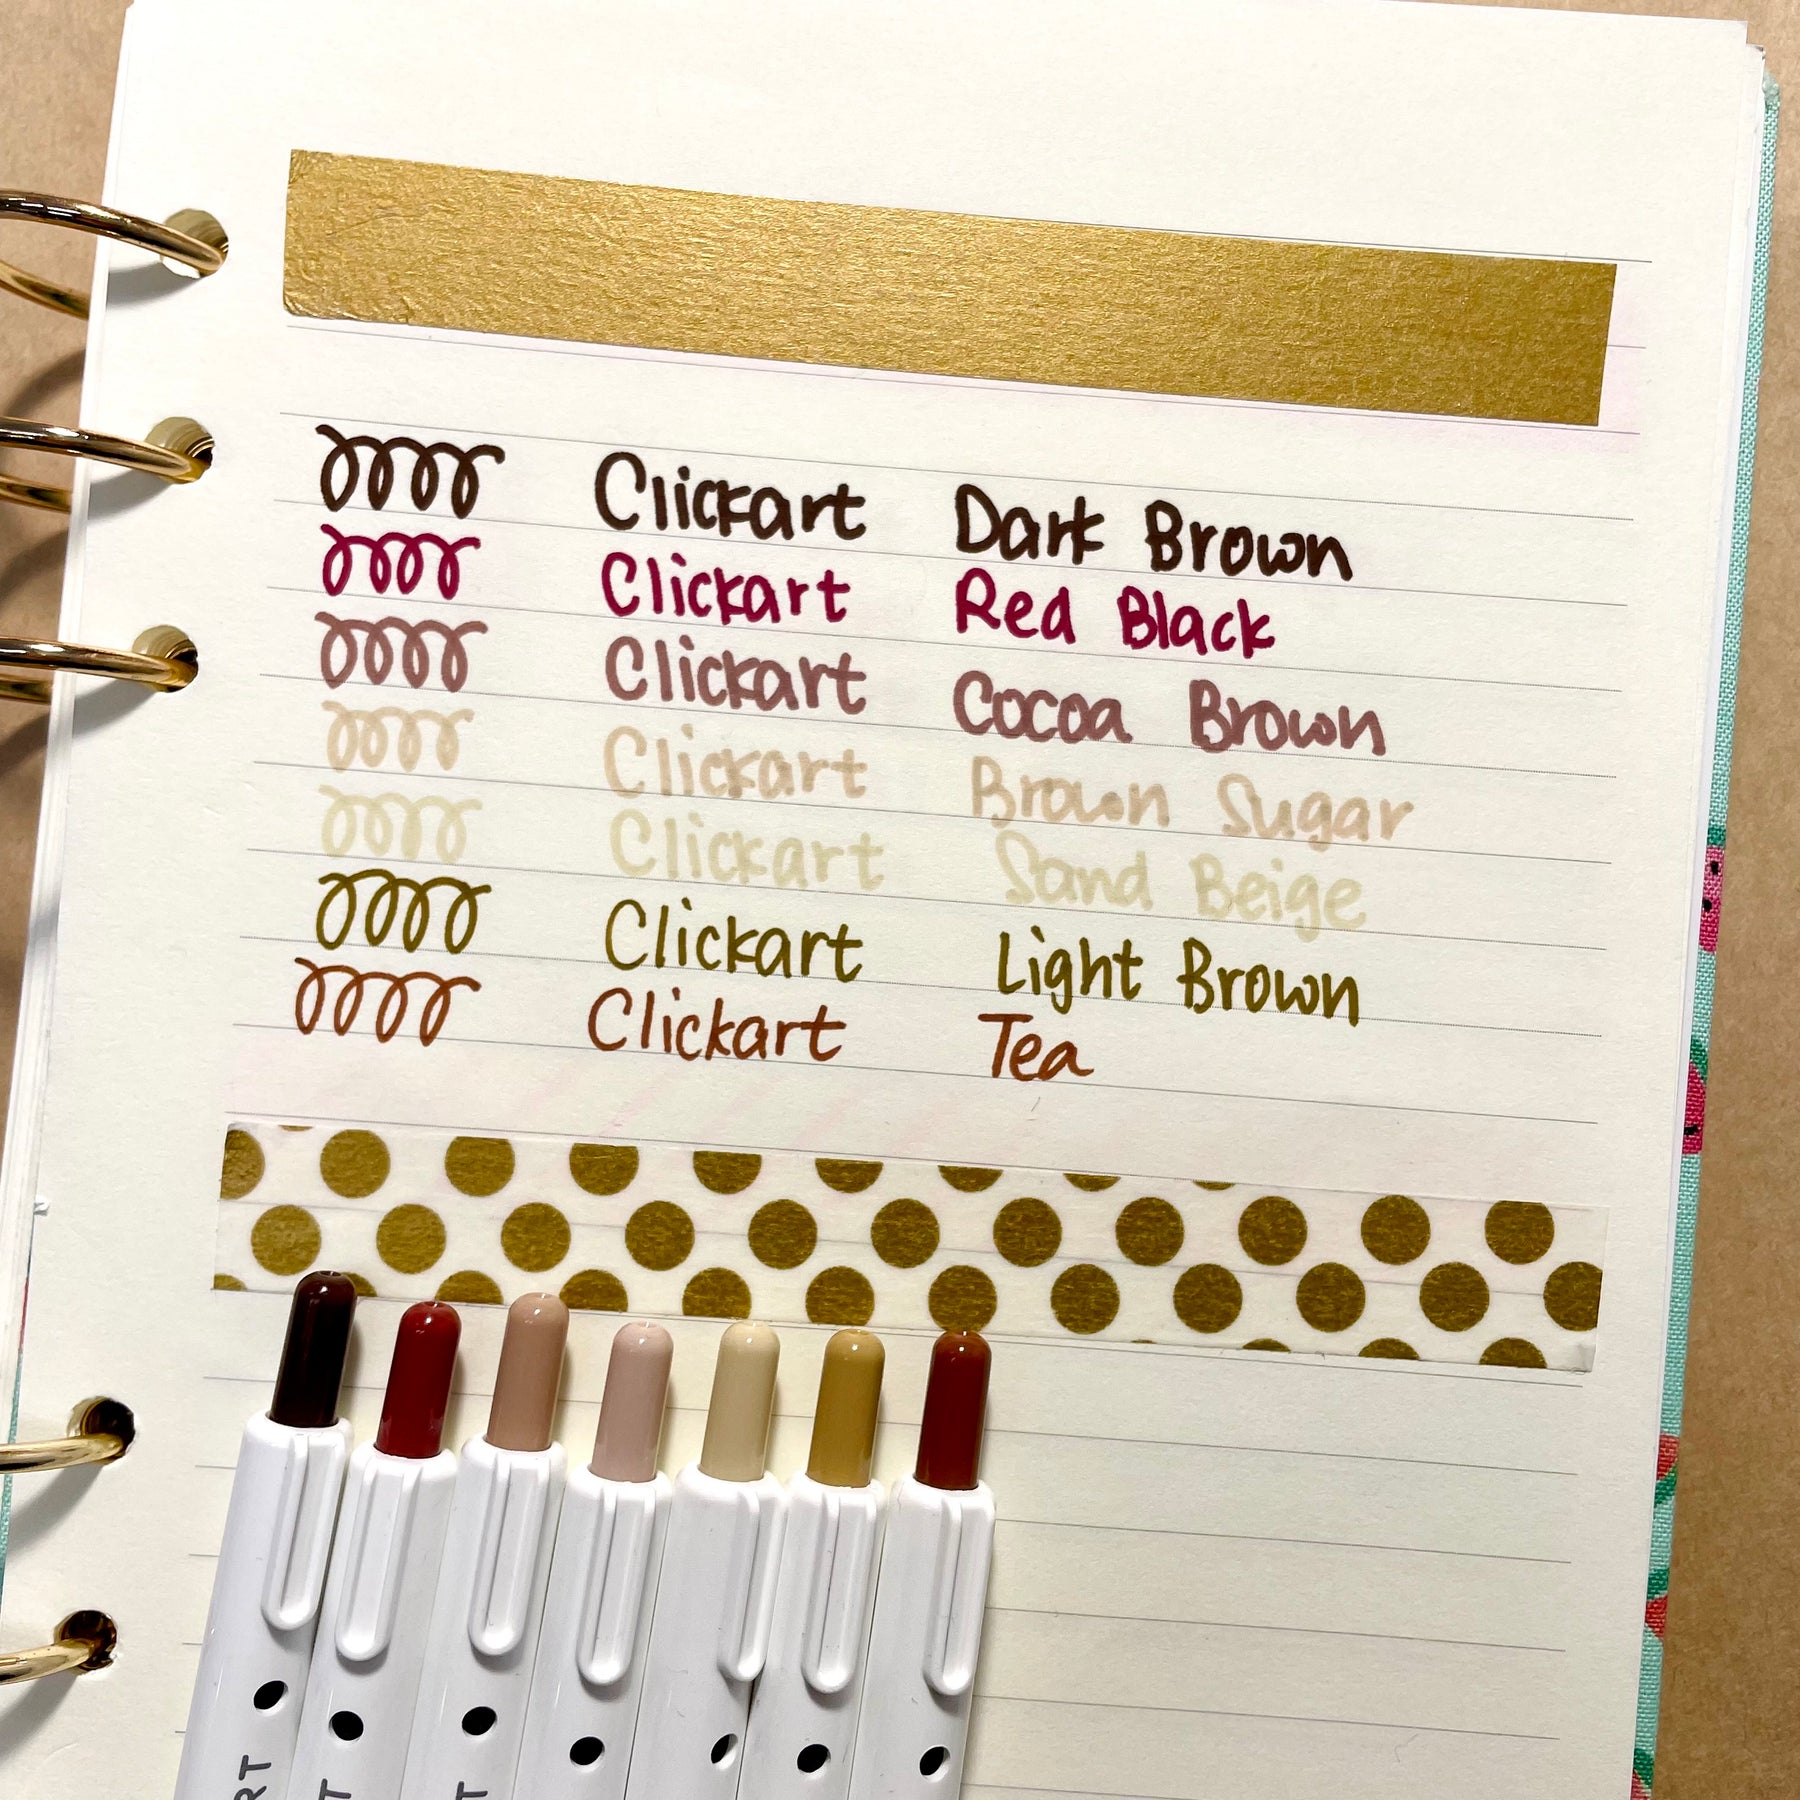 Clickart Dark Brown
Clickart Red Black
Clickart Cocoa Brown
Clickart Brown Sugar
Clickart Sand Beige
Clickart Light Brown
Clickart Tea
RT
T
T